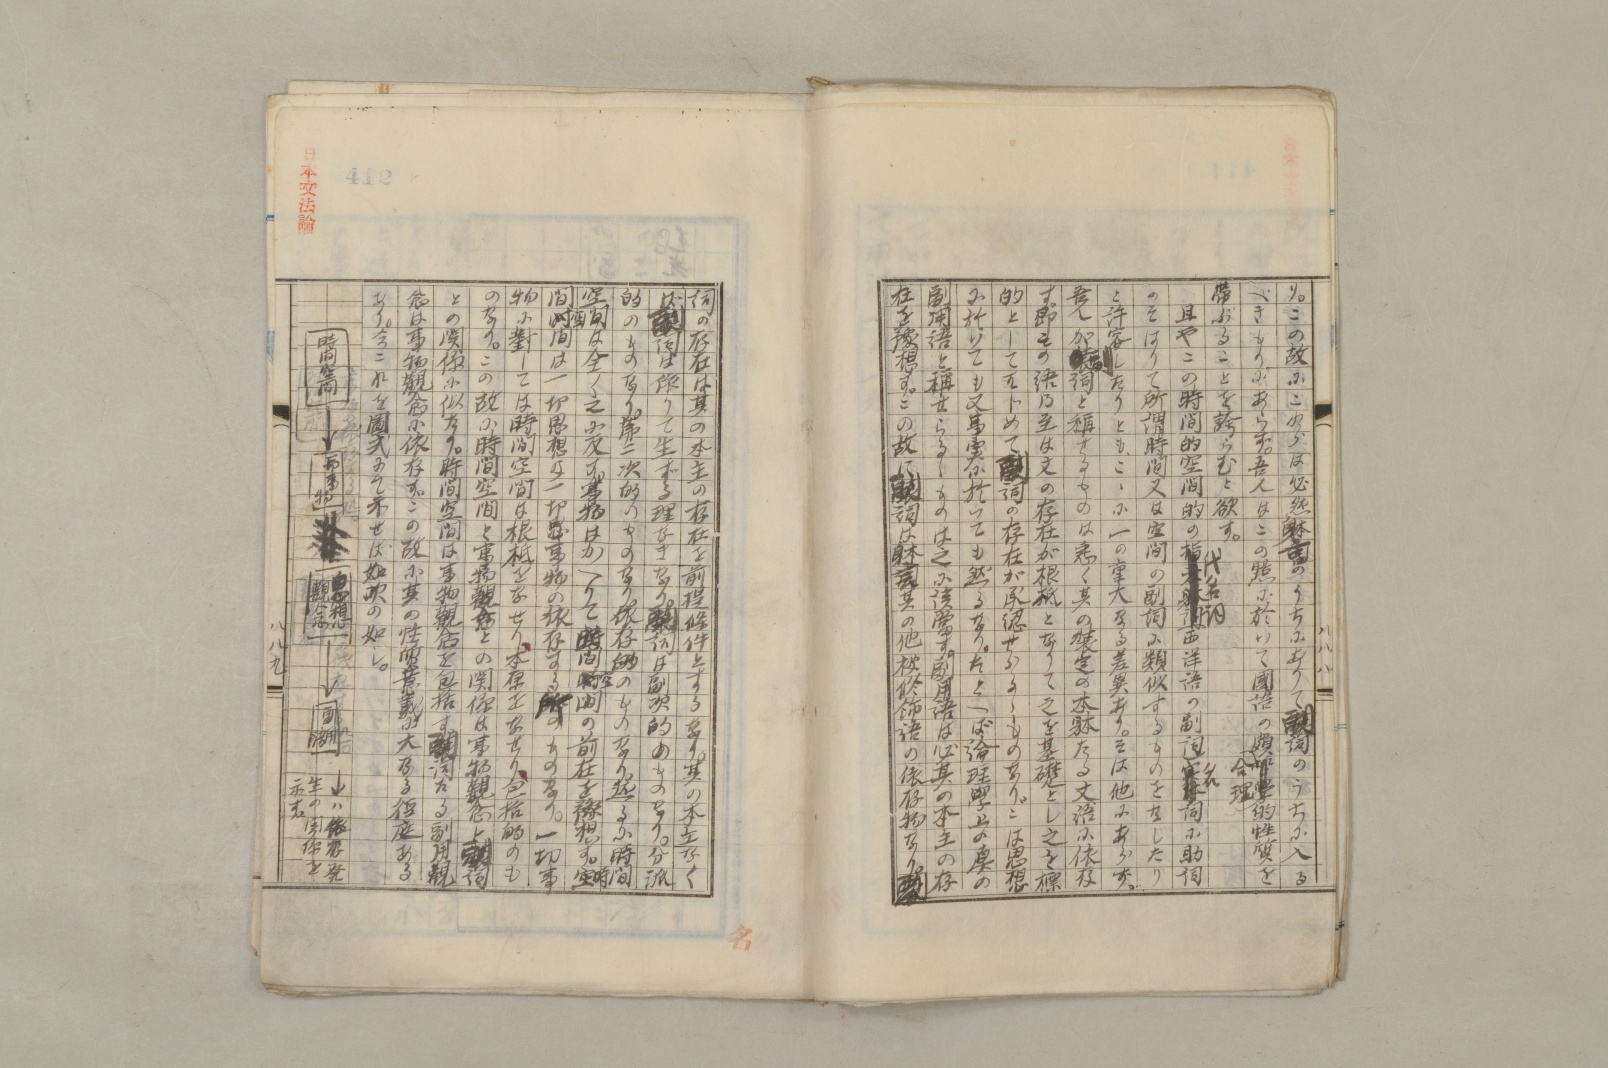 り。この故にこれらは必然体言のうちにありて副詞のうちに入る
べきものにあらず。吾人はこの点に於いて國語の頗合理的性質を
帯ぶることを誇らむと欲す。
且やこの時間的空間的の代名詞西洋語の副詞名詞に助詞
のそはりて所謂時間又は空間の副詞に類似するものをなしたり
と許容したりとも、こゝに一の重大なる差異あり。そは他にあらず。
吾人が副詞と称せるものは悉く其の装定の本躰たる文語に依存
す。即その語乃至は文の存在が根柢となりて之を基礎とし之を標
的としてはじめて副詞の存在が承認せらるゝものなり。こは思想
に於いても又事実に於いても然るなり。たとへば論理学上の
副用語と稱せらるゝものは之に該当す。副用語は必其の本主の存
在を豫想す。この故に副詞は体言其の他被修飾語の依存物なり。副
八八八
日本文法論
412
詞の存在は其の本主の存在を前提條件とするなり。其の本主なく
ば副詞は依りて生ずる理なきなり。副詞は副次的のものなり。分派
的のものなり。第二次的のものなり。依存的のものなり。然るに時間
空間は全く之に反す。事物はかへりて時間空間の前在を豫想す。空
間時間は一切思想又一切事物の依存する所のものなり。一切事
物に對しては時間空間は根柢をなせり、本原をなせり、包括的のも
のなり。この故に時間空間と事物觀念との関係は事物觀念と副詞
との関係に似たり。時間空間は事物觀念を包括す。副詞たる副用觀
念は事物觀念に依存す。この故に其の性質意義は大なる徑庭ある
あり。今これを圖式にて示せば如次の如し。
時間空間
事物
思想
觀念
副詞
↓ハ依存発
生の関係を
示す
八八九
名